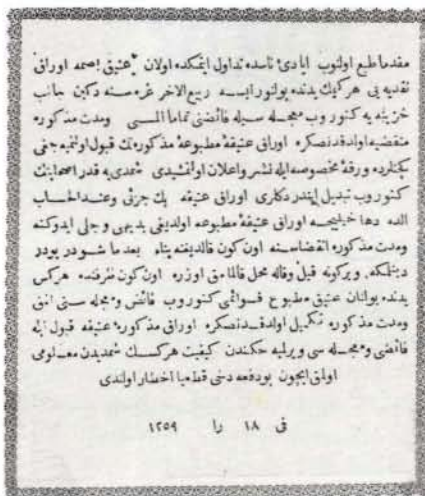 مقدما طبع اولنوب ایادیء ناسده تداول ایتمكده اولان عتیق بصمه اوراق
نقدیه یی هر كیمك یدنده بولنور ایسه ربیع الاخر غره سنه دكین جانب
خزینه یه كتوروب معجله سیله فائضنی تماما المسی ومدت مذكوره
منقضیه اولدقدنصكره اوراق عتیقهٔ مطبوعهٔ مذكوره نك قبول اولنمیه جغی
بكنلرده ورقهٔ مخصوصه ایله نشر واعلان اولنمشیدی شمدی یه قدر اصحابنك
كتوروب تبدیل ایتدردكلری اوراق عتیقه پك جزئی وعند الحساب
الده دها خیلیجه اوراق عتیقهٔ مطبوعه اولدیغی بدیهی وجلی ایدوكنه
ومدت مذكوره انقضاسنه اون كون قالدیغنه بناء بعدما شودر بودر
دینلمكه ویركونه قیل وقاله محل قالمامق اوزره اون كون ظرفنده هركس
یدنده بولنان عتیق مطبوع قوائمی كتوروب فائض ومعجله سنی المق
ومدت مذكوره تكمیل اولدقدنصكره اوراق مذكورهٔ عتیقه قبول ایله
فائضی ومعجله سی ویرلمیه جكندن كیفیت هركسك شمدیدن معلومی
اولمق ایچون بودفعه دخی قطعیا اخطار اولندی
فی ١٨ را ١٢٥٩